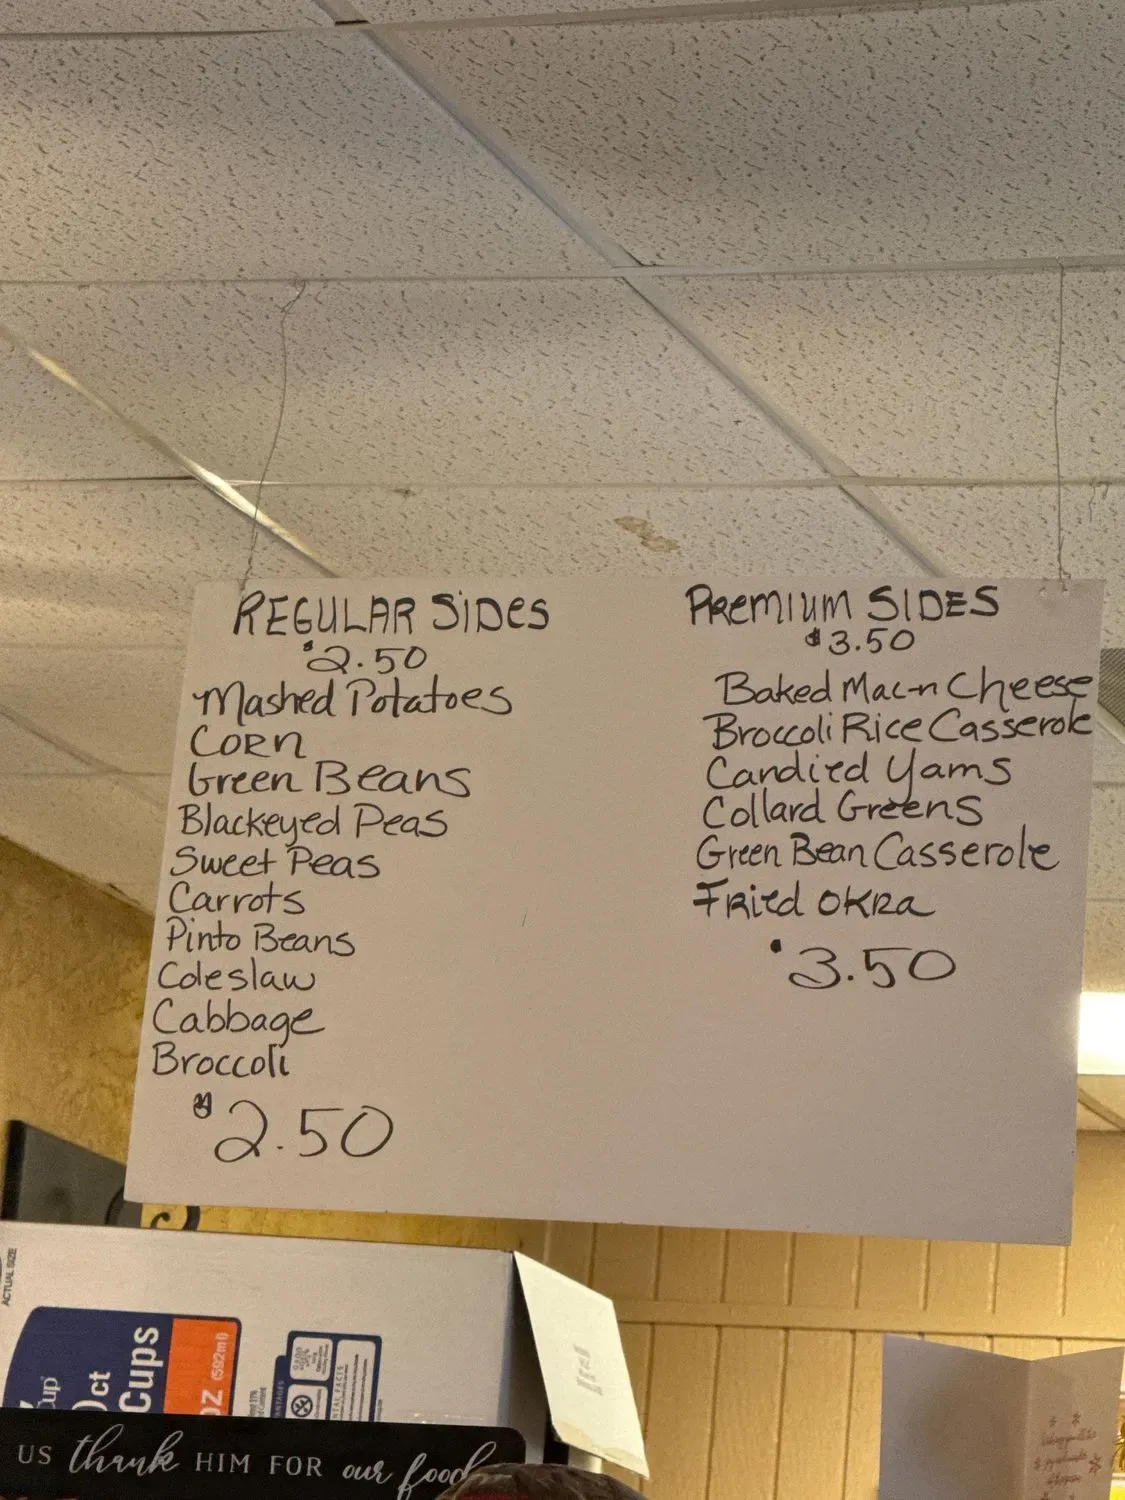 REGULAR SiDes
$2.50
Mashed Potatoes
CORn
Green Beans
Blackeyed Peas
Sweet Peas
Carrots
Pinto Beans
Coleslaw
Cabbage
Broccoli
$2.50
PRemium SIDES
$3.50
Baked Mac-n Cheese
Broccoli Rice Casserole
Candied Yams
Collard Greens
Green Bean Casserole
FRied OKRa
$3.50
ACTUAL SIZE
ct
Cups
OZ (592ml)
US thank HIM FOR our food